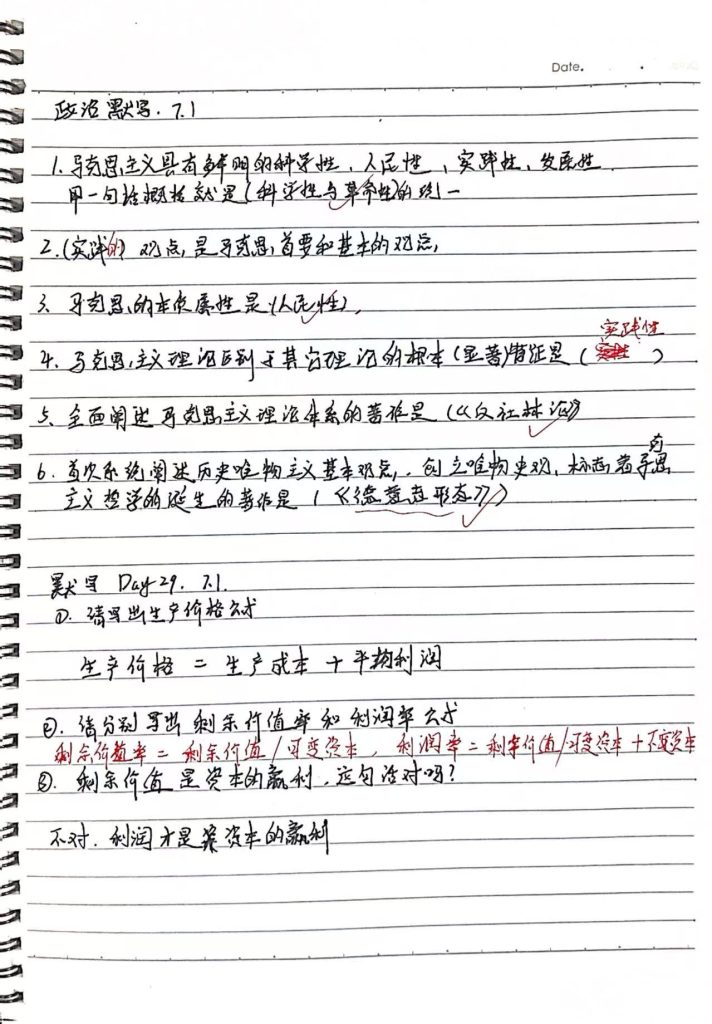 Date.
政治默写. 7.1
1. 马克思主义具有鲜明的科学性、人民性、实践性、发展性.
用一句话概括就是(科学性与革命性)的统一
2. (实践的)观点,是马克思首要和基本的观点,
3. 马克思的本质属性是(人民性),
实践性
4. 马克思主义理论区别于其它理论的根本(显著)特征是( )
5. 全面阐述马克思主义理论体系的著作是(《反杜林论》)
6. 首次系统阐述历史唯物主义基本观点,创立唯物史观,标志着马克思
主义哲学的诞生的著作是(《德意志形态》)
默写 Day 29. 7.1.
①. 请写出生产价格公式
生产价格 = 生产成本 + 平均利润
②. 请分别写出剩余价值率和利润率公式
剩余价值率 = 剩余价值 / 可变资本, 利润率 = 剩余价值 / 可变资本 + 不变资本
③. 剩余价值是资本的赢利,这句话对吗?
不对. 利润才是资本的赢利